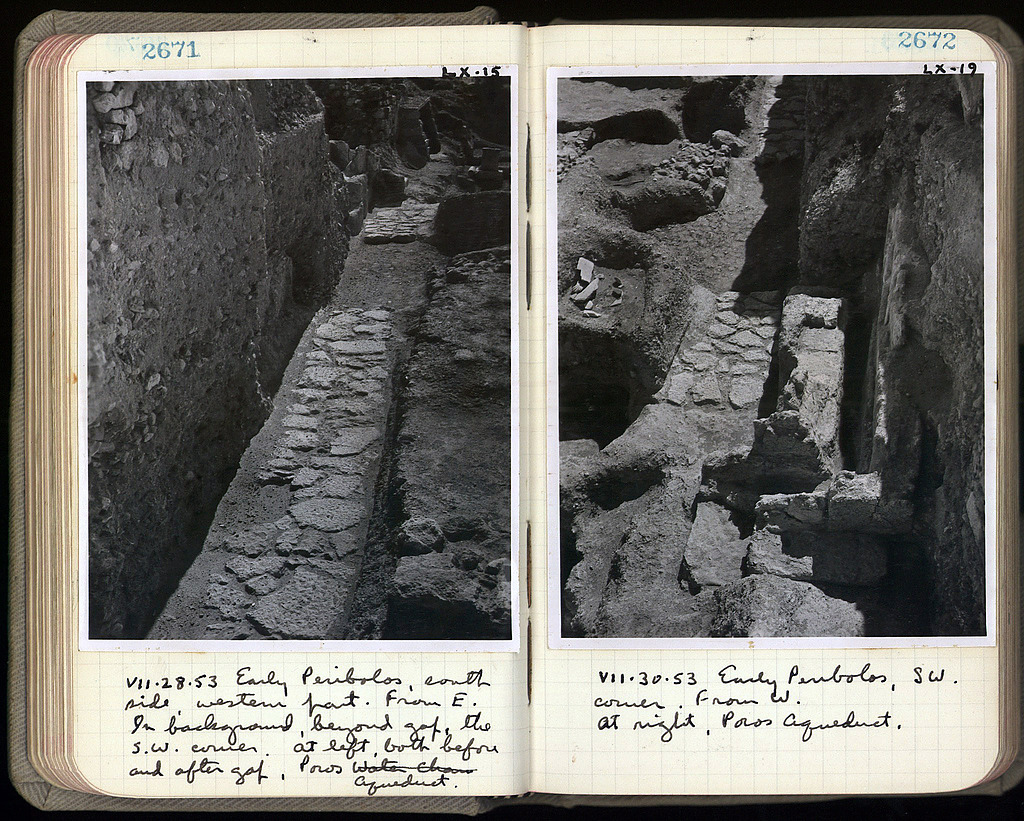 2671
LX·15
VII·28·53 Early Peribolos, south
side, western part. From E.
In background, beyond gap, the
S.W. corner. At left, both before
and after gap, Poros Water Chan
Aqueduct.
2672
LX-19
VII·30·53 Early Peribolos, SW.
corner. From W.
At right, Poros Aqueduct.